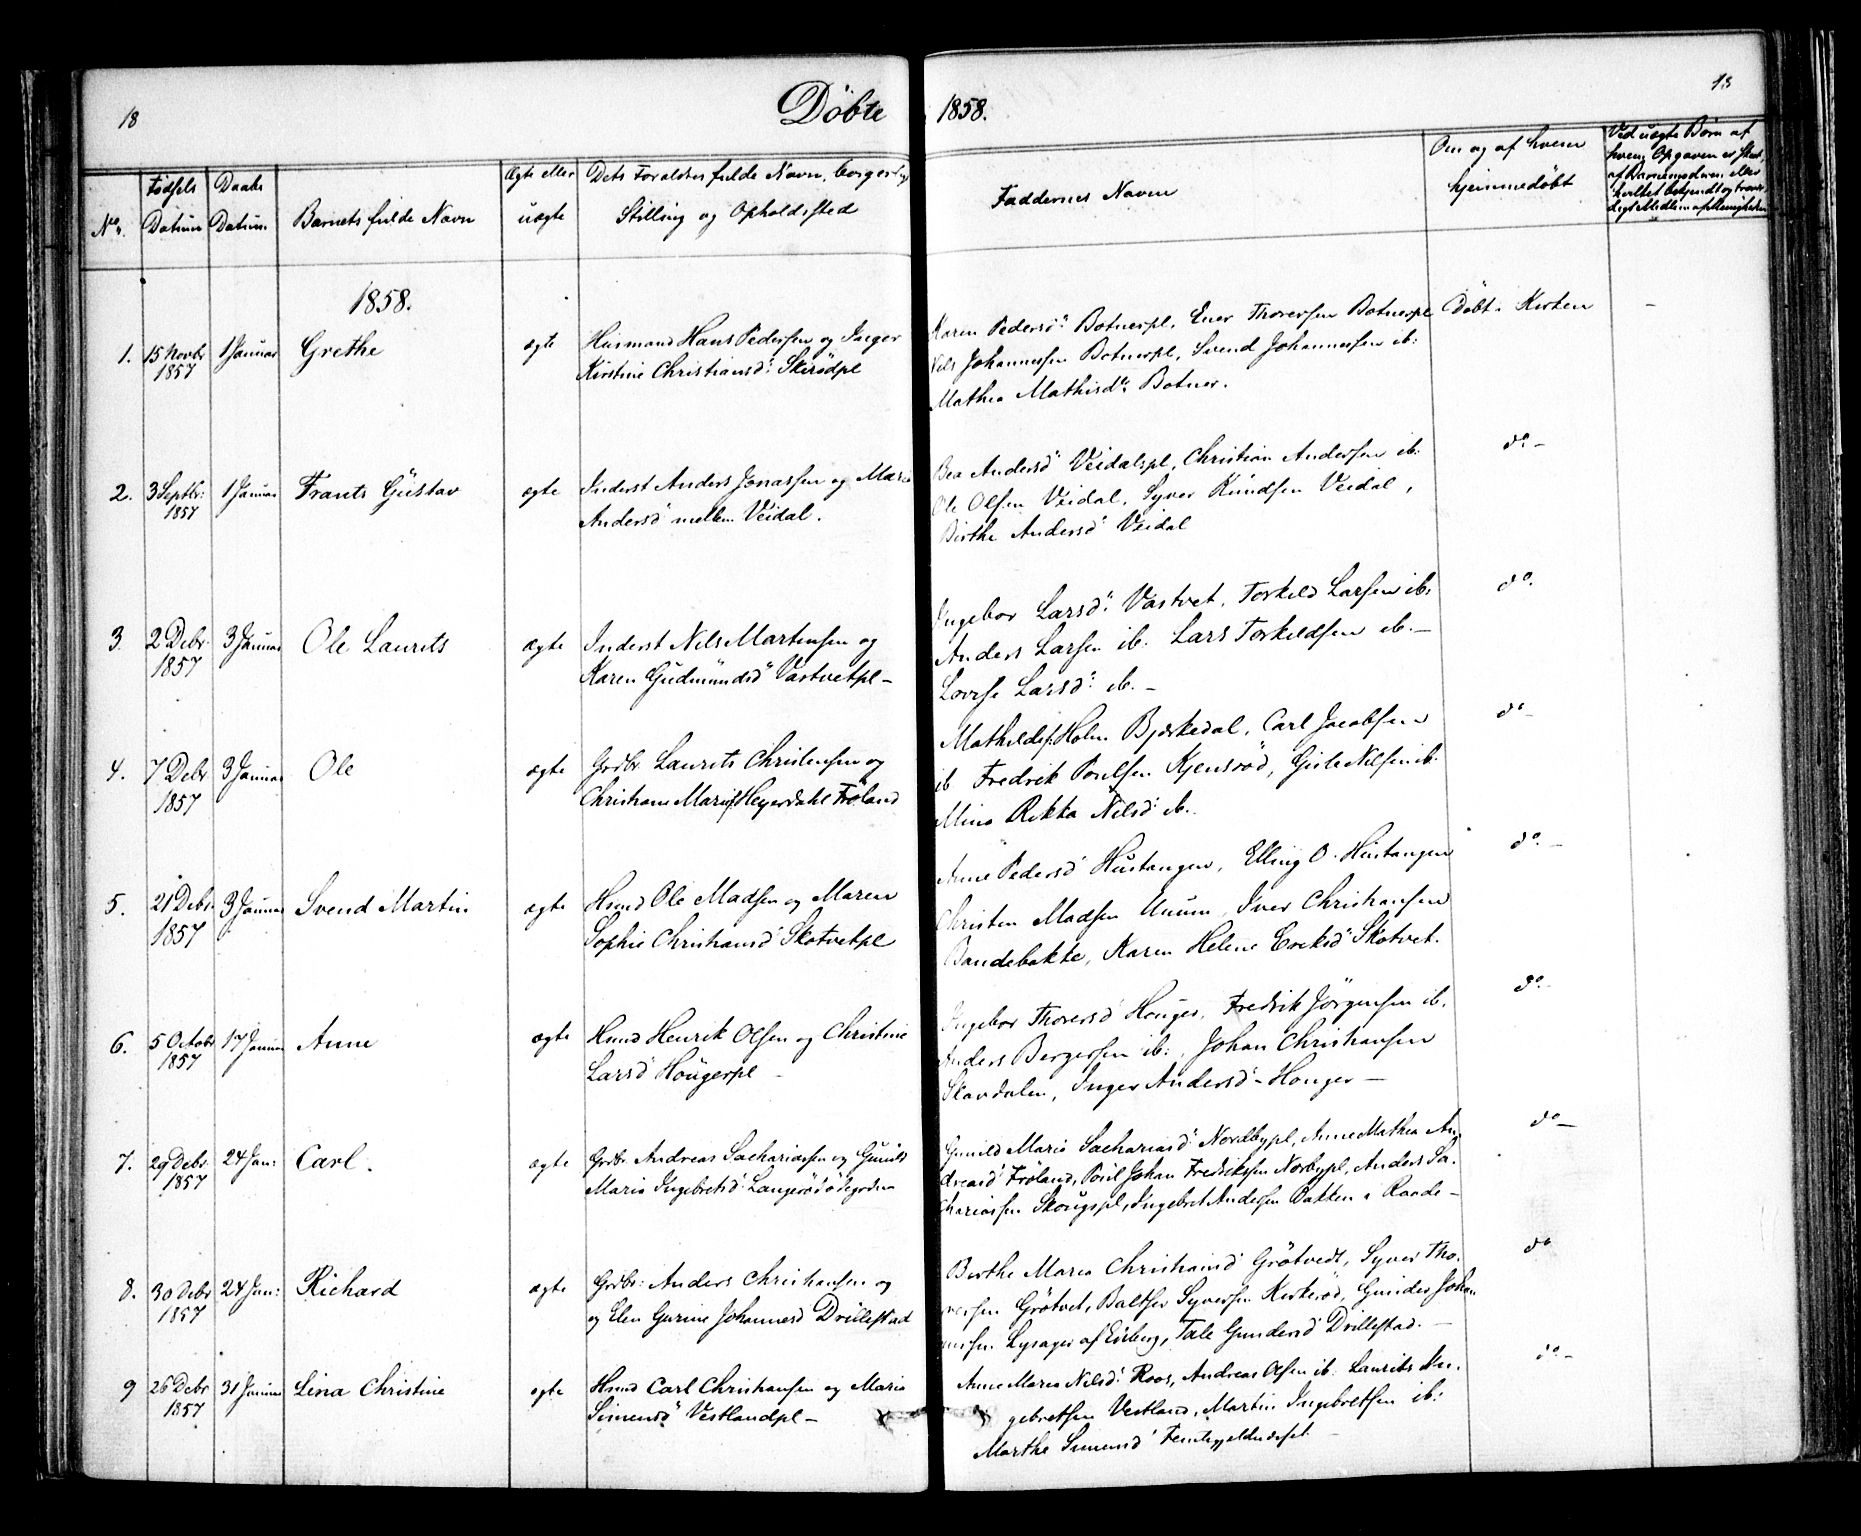 18
Döbte
1858.
18
No.
Fødsels
Datum
Daabs
Datum
Barnets fulde Navn
Ægte eller
uægte
Dets Forældres fulde Navn, borgerlig
Stilling og Opholdssted
Faddernes Navn
Om og af hvem
hjemmedöbt
Ved uægte Børn af
hvem Opgaven er skeet,
af Barnemoderen eller
hvilket betyendt og trovær-
digt Medlem af Menigheden
1858.
1.
15 Novbr
1857
1 Januar
Grethe
ægte
Husmand Hans Pedersen og Inger
Kirstine Christiansd: Skirödpl
Karen Pedersd: Botnerpl, Ener Thoresen Botnerpl
Nils Johannessen Botnerpl, Svend Johannessen ib:
Mathea Mathisd: Botner.
Döbt i Kirken
2.
3 Septbr:
1857
1 Januar
Frants Gustav
ægte
Inderst Anders Jonassen og Maria
Andersd mellem Veidal.
Bea Andersd Veidalspl, Christian Andersen ib:
Ole Olsen Veidal, Syver Knudsen Veidal,
Birthe Andersd Veidal
do -
3.
2 Debr
1857
3 Januar
Ole Laurits
ægte
Inderst Nils Martensen og
Karen Gudmundsd Vastvetpl -
Ingebor Larsd: Vastvet, Torkild Larsen ib:
Anders Larsen ib: Lars Torkildsen ib. -
Lovise Larsd: ib. -
do.
4.
7 Debr
1857
3 Januar
Ole
ægte
Grdbr. Laurits Christensen og
Christiane Marie f. Heyerdahl Fröland
Mathilde f. Holm Bjerkedal, Carl Jacobsen
ib Fredrik Poulsen Kjensröd, Gule Nilsen ib.
Mina Rikka Nilsd: ib.
do -
5.
21 Debr
1857
3 Januar
Svend Martin
ægte
Hsmd Ole Madsen og Maren
Sophie Christiansd Skotvetpl
Anne Pedersd Hustangen, Elling O. Hustangen
Christen Madsen Unum, Iver Christiansen
Bandebakke, Karen Helene Eriksd Skotvet.
do. -
6.
5 Octobr
1857
17 Januar
Anne
ægte
Hsmd Henrik Olsen og Christine
Larsd Hougerpl -
Ingebor Thoresd Houger, Fredrik Jörgensen ib.
Anders Bergersen ib:, Johan Christiansen
Skavdalen, Inger Andersd - Houger -
do -
7.
29 Debr
1857
24 Jan:
Carl.
ægte
Grdbr. Andreas Sachariassen og Gunild
Maria Ingebretsd: Langeröd ödegrden
Gunild Maria Sachariasd Nordbypl, Anne Mathea An-
dreasd Fröland, Poul Johan Fredriksen Norbypl, Anders Sa-
chariassen Skougspl, Ingebret Andersen Bakken i Raade -
do -
8.
30 Debr
1857
24 Jan:
Richard
ægte
Grdbr: Anders Christiansen og
og Elen Gurine Johannesd Drillestad
Berthe Maria Christiansd Grötvedt, Syver Tho-
resen Grötvet, Baltser Syversen Kirkeröd, Gunder Johan
nesen Lysager af Eisberg, Tale Gundersd Drillestad. -
do
9
26 Debr
1857
31 Januar
Lina Christine
ægte
Hsmd Carl Christiansen og Maria
Simensd Vestlandpl -
Anne Maria Nilsd: Roos, Andreas Olsen ib: Laurits In-
gebretsen Vestland, Martin Ingebretsen ib:
Marthe Simensd
do -